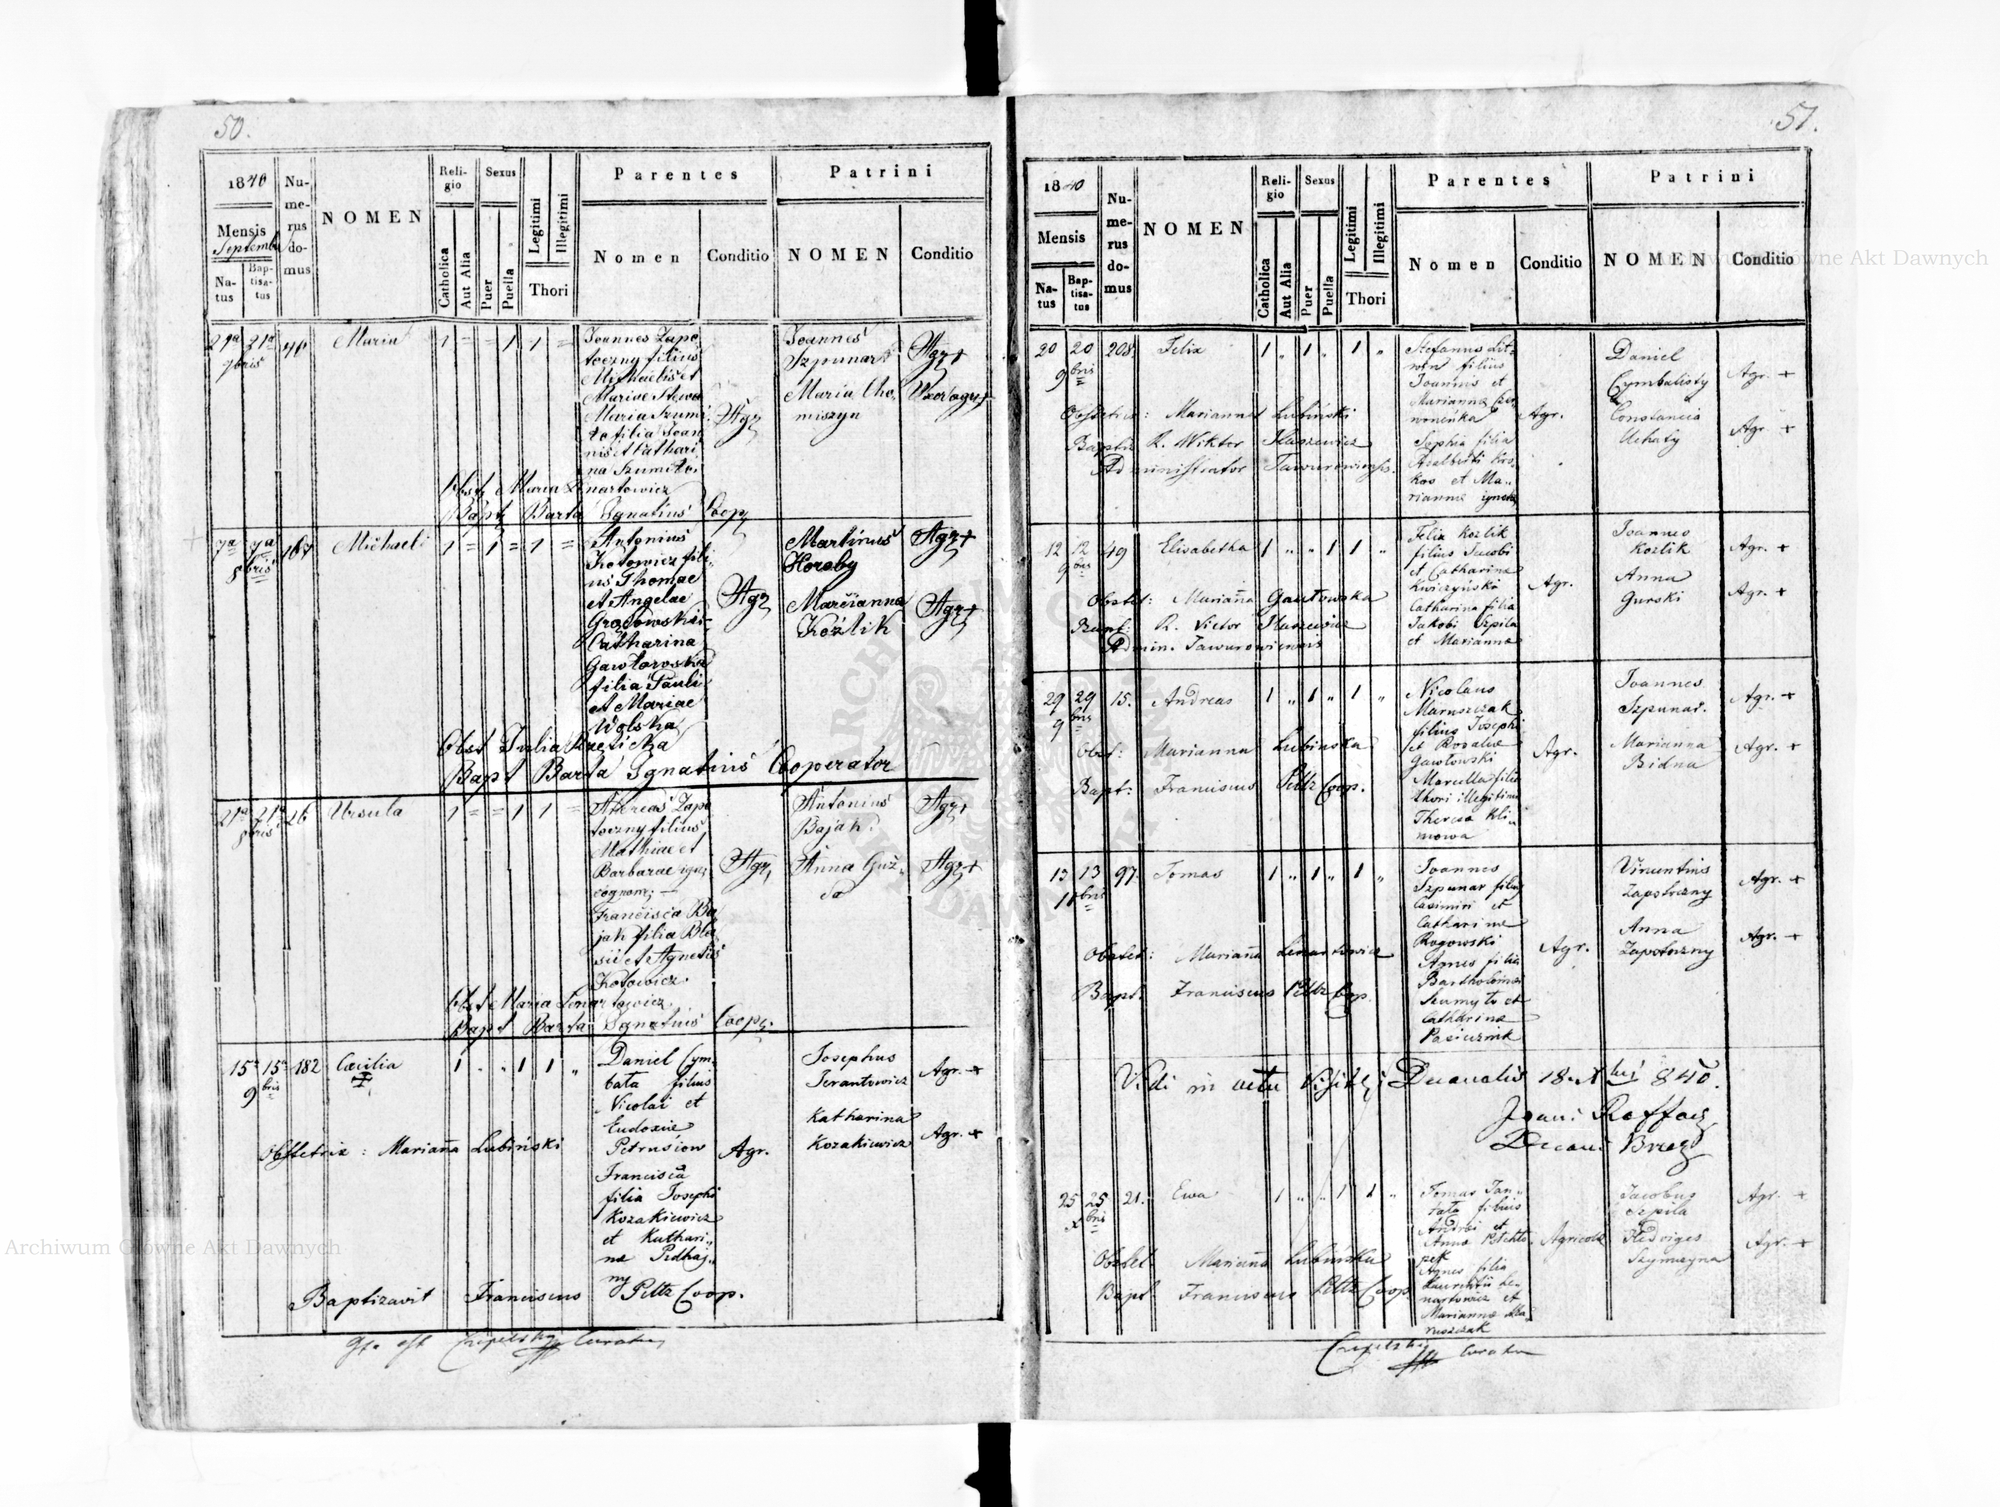 50.
1840
Mensis
Septembr
Natus
Baptisatus
Numerus domus
NOMEN
Religio
Catholica
Aut Alia
Sexus
Puer
Puella
Legitimi
Illegitimi
Thori
Parentes
Nomen
Conditio
Patrini
NOMEN
Conditio
21a 21a 46 Maria 1 = = 1 1 =
7bris
Joannes Zapo
toczny filius
Michaelis et
Mariae
Maria Szumi
ło filia Joan
nis et Cathari
na Szumiło
Agr
Joannes
Szpunar
Maria Cho
miszyn
Agr +
Uxor agr +
Obst Maria Lenartowicz
Bapt Barta Ignatius Coop
7a 7a 167 Michael 1 = 1 = 1 =
8bris
Antonius
Kotowicz fili
us Thomae
et Angelae
Catharina
Gawłowska
filia Pauli
et Mariae
Wolska
Agr
Martinus
Horaby
Marcianna
Kozlik
Agr +
Agr +
Obst Julia
Bapt Barta Ignatius Cooperator
21a 21a 26 Ursula 1 = = 1 1 =
8bris
Andreas Zapo
toczny filius
Mathiae et
Barbarae
cognom;
Francisca Ba
jak filia Bla
sii et Agnetis
Kotowicz
Agr
Antonius
Bajak
Anna Guz
da
Agr +
Agr +
Obst Maria Lenartowicz
Bapt Barta Ignatius Coop.
15a 15a 182 Cæcilia 1 „ „ 1 1 „
9bris
Daniel Cym
bała filius
Nicolai et
Eudoxiæ
Petrusiow
Francisca
filia Josephi
Kozakiewicz
et Kathari„
næ Pidhaj„
ny
Agr.
Josephus
Terantowicz
Katharina
Kozakiewicz
Agr. +
Agr. +
Obstetrix : Marianna Lubiński
Baptizavit Franciscus Peltz Coop.
Curatus
51.
1840
Mensis
Natus
Baptisatus
Numerus domus
NOMEN
Religio
Catholica
Aut Alia
Sexus
Puer
Puella
Legitimi
Illegitimi
Thori
Parentes
Nomen
Conditio
Patrini
NOMEN
Conditio
20 20 208. Felix 1 „ 1 „ 1 „
9bris
Stefanus Lit„
win filius
Joannis et
Marianna
Sophia filia
Adalberti Kos„
kos et Ma„
riannæ
Agr.
Daniel
Cymbalisty
Constancia
Uchaty
Agr. +
Agr. +
Obstetrix : Marianna Lubiński
Bapt: R. Wiktor
Administrator
12 12 49 Elisabetha 1 „ „ 1 1 „
9bris
Felix Kozlik
filius Jacobi
et Catharina
Catharina filia
Jakobi Szpila
et Marianna
Agr.
Joannes
Kozlik
Anna
Gurski
Agr. +
Agr. +
Obstet: Marianna Gawłowska
Bapt: R. Victor
Admin.
29 29 15. Andreas 1 „ 1 „ 1 „
9bris
Nicolaus
Maruszczak
filius Josephi
et Rosaliæ
Gawłowski
Marcella filia
thori illegitimi
Theresa Kli„
mowa
Agr.
Joannes
Szpunar.
Marianna
Bidna
Agr. +
Agr. +
Obst: Marianna Lubinska
Bapt: Franciscus Peltz Coop.
13 13 97. Tomas 1 „ 1 „ 1 „
11bris
Joannes
Szpunar filius
Casimiri et
Catharinæ
Rogowski
Agnes filia
Bartholomæi
Szumyło et
Catharinæ
Pasicznik
Agr.
Vincentius
Zapotoczny
Anna
Zapotoczny
Agr. +
Agr. +
Obstet: Marianna Lenartowicz
Bapt: Franciscus Peltz Coop.
Vidi in actu Decanalis 840.
25 25 21. Ewa 1 „ „ 1 1 „
Xbris
Tomas Jan„
tała filius
Andrei et
Annæ
Agnes filia
Laurentii Le„
nartowicz et
Marianna Ma
ruszczak
Agricola
Jacobus
Szpila
Hedviges
Szymczyna
Agr. +
Agr. +
Obstet. Marianna Lubinska
Bapt Franciscus Peltz Coop
Archiwum Główne Akt Dawnych
Archiwum Główne Akt Dawnych